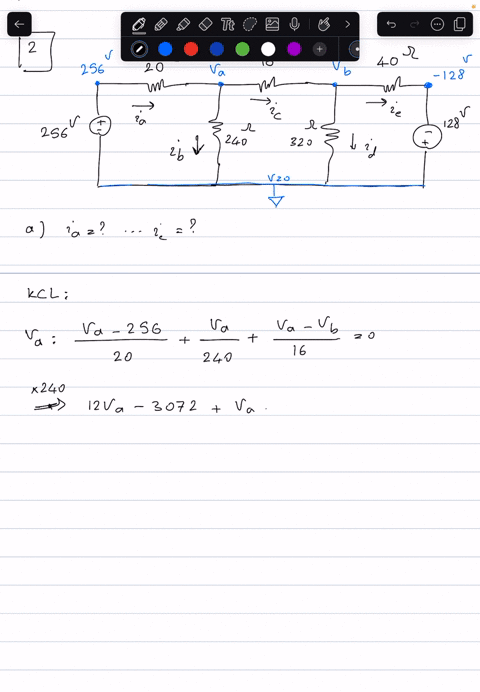 2
256 V
20
Va
Vb
40 Ω
-128 V
ia
ic
ie
256 V
ib
240 Ω
320 Ω
id
128 V
V=0
a) ia = ? ... ie = ?
KCL:
Va: (Va - 256)/20 + Va/240 + (Va - Vb)/16 = 0
×240
⇒ 12Va - 3072 + Va